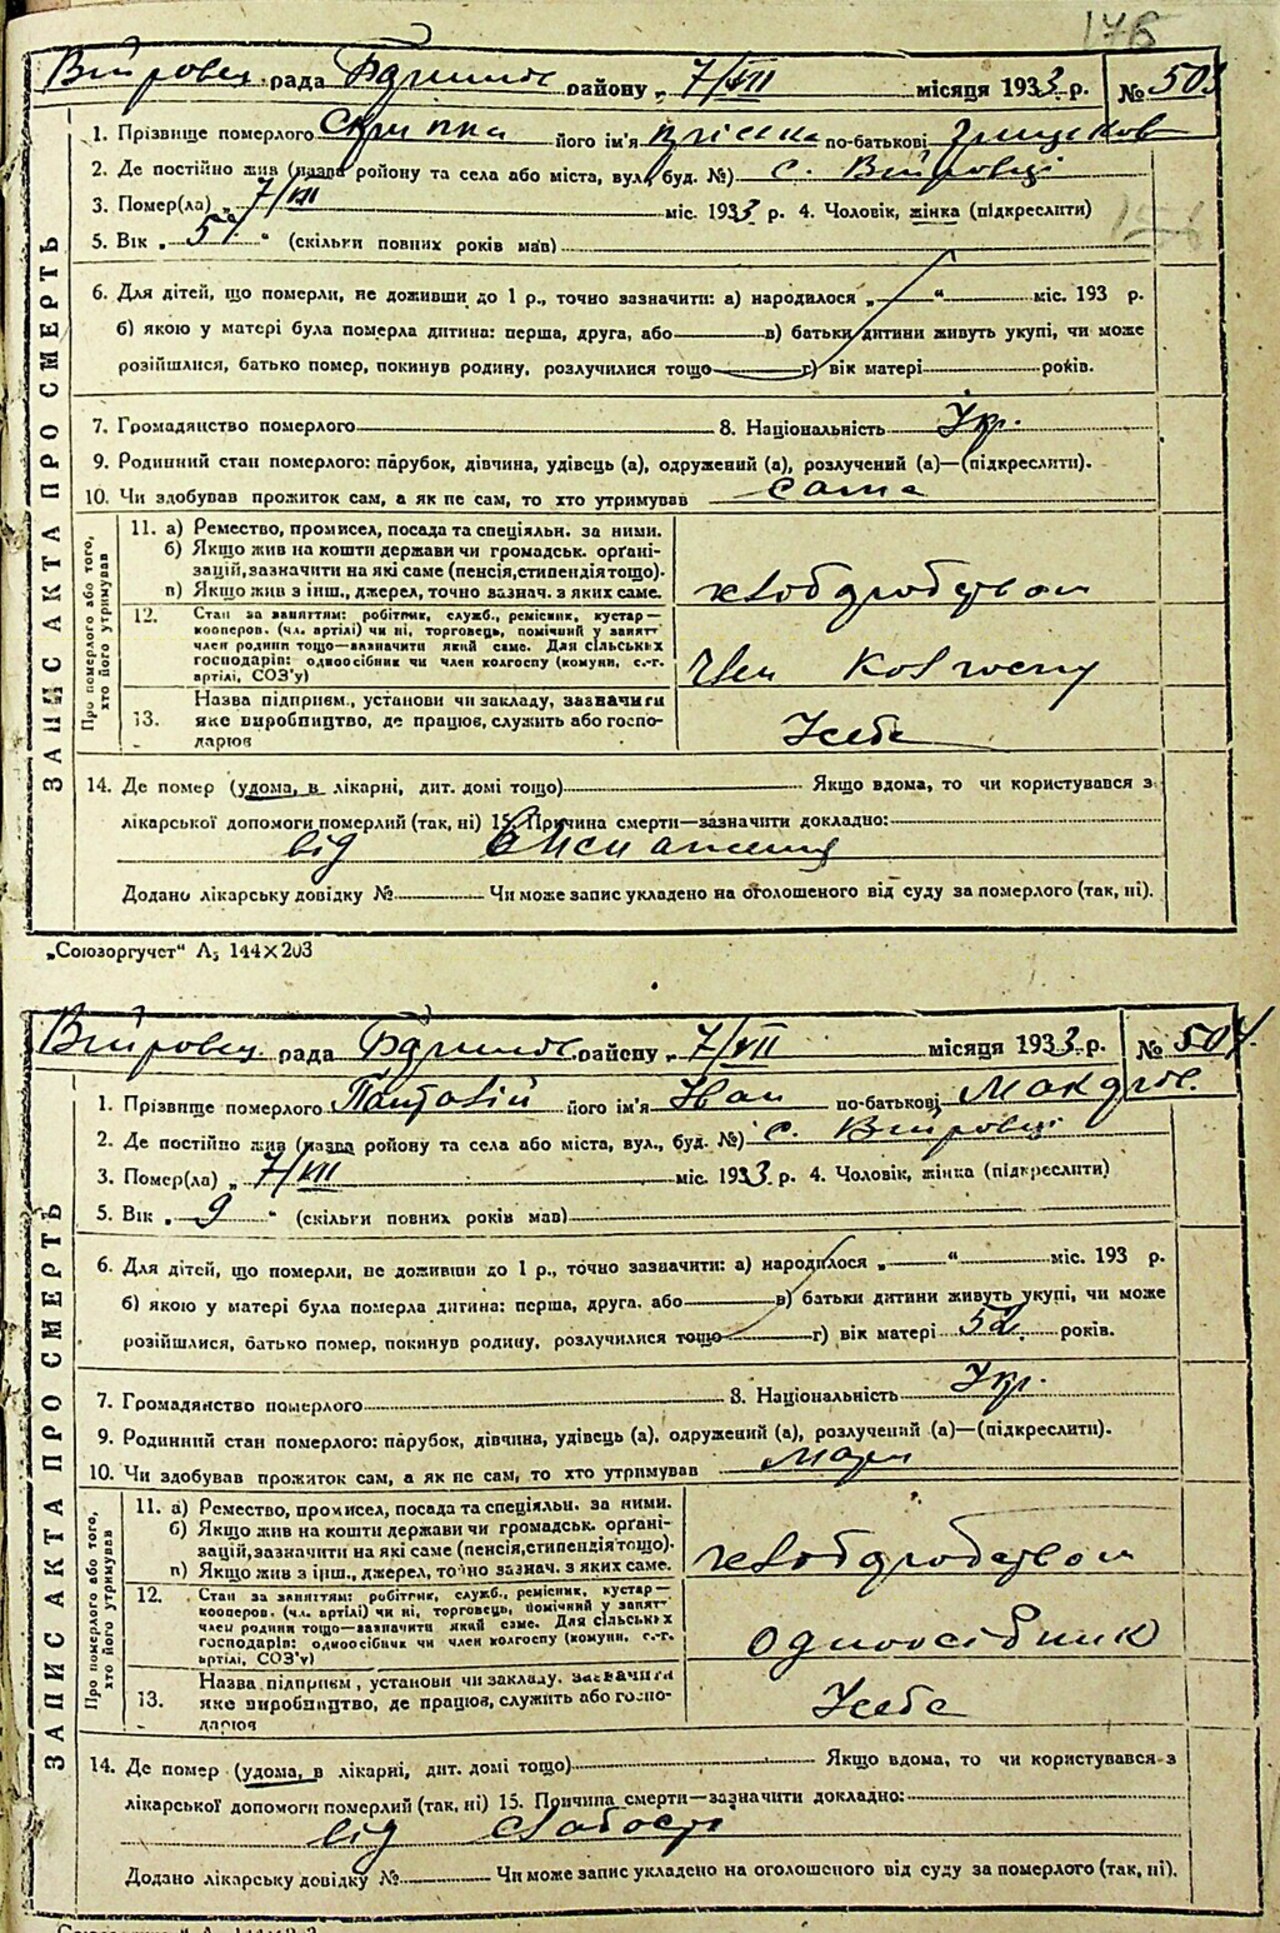 176
Війтовец. рада район у „ 7/VII місяця 1933 р. № 503
1. Прізвище померлого Скрипка його ім'я по-батькові
2. Де постійно жив (назва району та села або міста, вул., буд. №) с. Війтовці
3. Помер(ла) „ 7/VII міс. 1933 р. 4. Чоловік, жінка (підкреслити)
5. Вік „ 57 “ (скільки повних років мав)
6. Для дітей, що померли, не доживши до 1 р., точно зазначити: а) народилося „ “ міс. 193 р.
б) якою у матері була померла дитина: перша, друга, або в) батьки дитини живуть укупі, чи може
розійшлися, батько помер, покинув родину, розлучилися тощо г) вік матері років.
7. Громадянство померлого 8. Національність Укр.
9. Родинний стан померлого: парубок, дівчина, удівець (а), одружений (а), розлучений (а)—(підкреслити).
10. Чи здобував прожиток сам, а як не сам, то хто утримував сама
ЗАПИС АКТА ПРО СМЕРТЬ
Про померлого або того, хто його утримував
11. а) Ремество, промисел, посада та спеціяльн. за ними.
б) Якщо жив на кошти держави чи громадськ. орґані-
зацій, зазначити на які саме (пенсія, стипендія тощо).
в) Якщо жив з інш., джерел, точно зазнач. з яких саме.
хлібдробством
12. Стан за заняттям: робітник, служб., ремісник, кустар—
кооперов. (чл. артілі) чи ні, торговець, помічний у занятт
член родини тощо—зазначити який саме. Для сільських
господарів: одноосібник чи член колгоспу (комуни, с.-г.
артілі, СОЗ'у)
Член колгоспу
13. Назва підприєм., установи чи закладу, зазначити
яке виробництво, де працює, служить або госпо-
дарює
У себе
14. Де помер (удома, в лікарні, дит. домі тощо) Якщо вдома, то чи користувався з
лікарської допомоги померлий (так, ні) 15. Причина смерти—зазначити докладно:
від Виснаження
Додано лікарську довідку № Чи може запис укладено на оголошеного від суду за померлого (так, ні).
„Союзоргучет“ А5 144×203
Війтовец. рада району „ 7/VII місяця 1933 р. № 504.
1. Прізвище померлого його ім'я Іван по-батькові
2. Де постійно жив (назва району та села або міста, вул., буд. №) с. Війтовці
3. Помер(ла) „ 7/VII міс. 1933 р. 4. Чоловік, жінка (підкреслити)
5. Вік „ 9 “ (скільки повних років мав)
6. Для дітей, що померли, не доживши до 1 р., точно зазначити: а) народилося „ “ міс. 193 р.
б) якою у матері була померла дитина: перша, друга. або в) батьки дитини живуть укупі, чи може
розійшлися, батько помер, покинув родину, розлучилися тощо г) вік матері 52 років.
7. Громадянство померлого 8. Національність Укр.
9. Родинний стан померлого: парубок, дівчина, удівець (а), одружений (а), розлучений (а)—(підкреслити).
10. Чи здобував прожиток сам, а як не сам, то хто утримував
ЗАПИС АКТА ПРО СМЕРТЬ
Про померлого або того, хто його утримував
11. а) Ремество, промисел, посада та спеціяльн. за ними.
б) Якщо жив на кошти держави чи громадськ. орґані-
зацій, зазначити на які саме (пенсія, стипендія тощо).
в) Якщо жив з інш., джерел, точно зазнач. з яких саме.
хлібдробством
12. Стан за заняттям: робітник, служб., ремісник, кустар—
кооперов. (чл. артілі) чи ні, торговець, помічний у занятт
член родини тощо—зазначити який саме. Для сільських
господарів: одноосібник чи член колгоспу (комуни, с.-г.
артілі, СОЗ'у)
Одноосібник
13. Назва підприєм, установи чи закладу, зазначити
яке виробництво, де працює, служить або госпо-
дарює
У себе
14. Де помер (удома, в лікарні, дит. домі тощо) Якщо вдома, то чи користувався з
лікарської допомоги померлий (так, ні) 15. Причина смерти—зазначити докладно:
від слабості
Додано лікарську довідку № Чи може запис укладено на оголошеного від суду за померлого (так, ні).